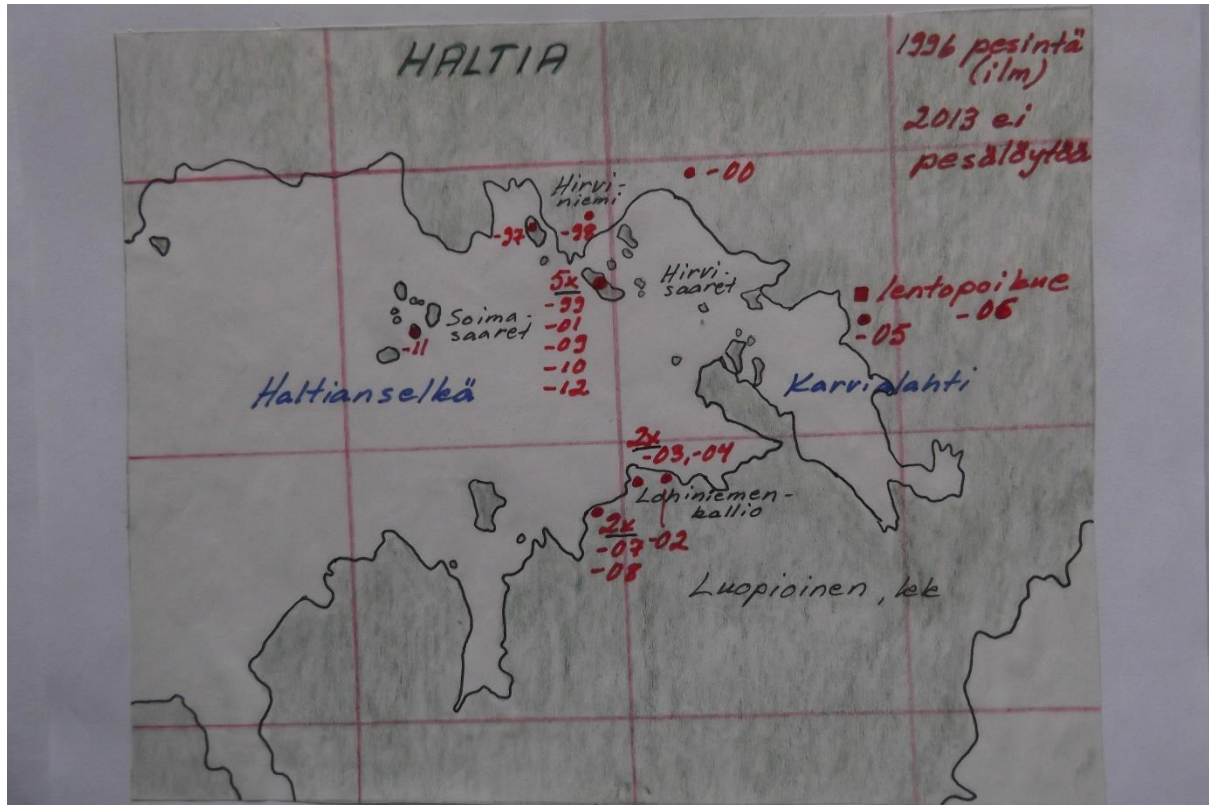 HALTIA
1996 pesintä
(ilm)
2013 ei
pesälöytöä
- 00
Hirvi-
niemi
-97
-98
5x
-99
-01
-09
-10
-12
Hirvi-
saaret
Soima-
saaret
-11
lentopoikue
- 06
-05
Haltianselkä
Karvialahti
2x
-03,-04
Lohiniemen-
kallio
2x
-07
-08
-02
Luopioinen, kk